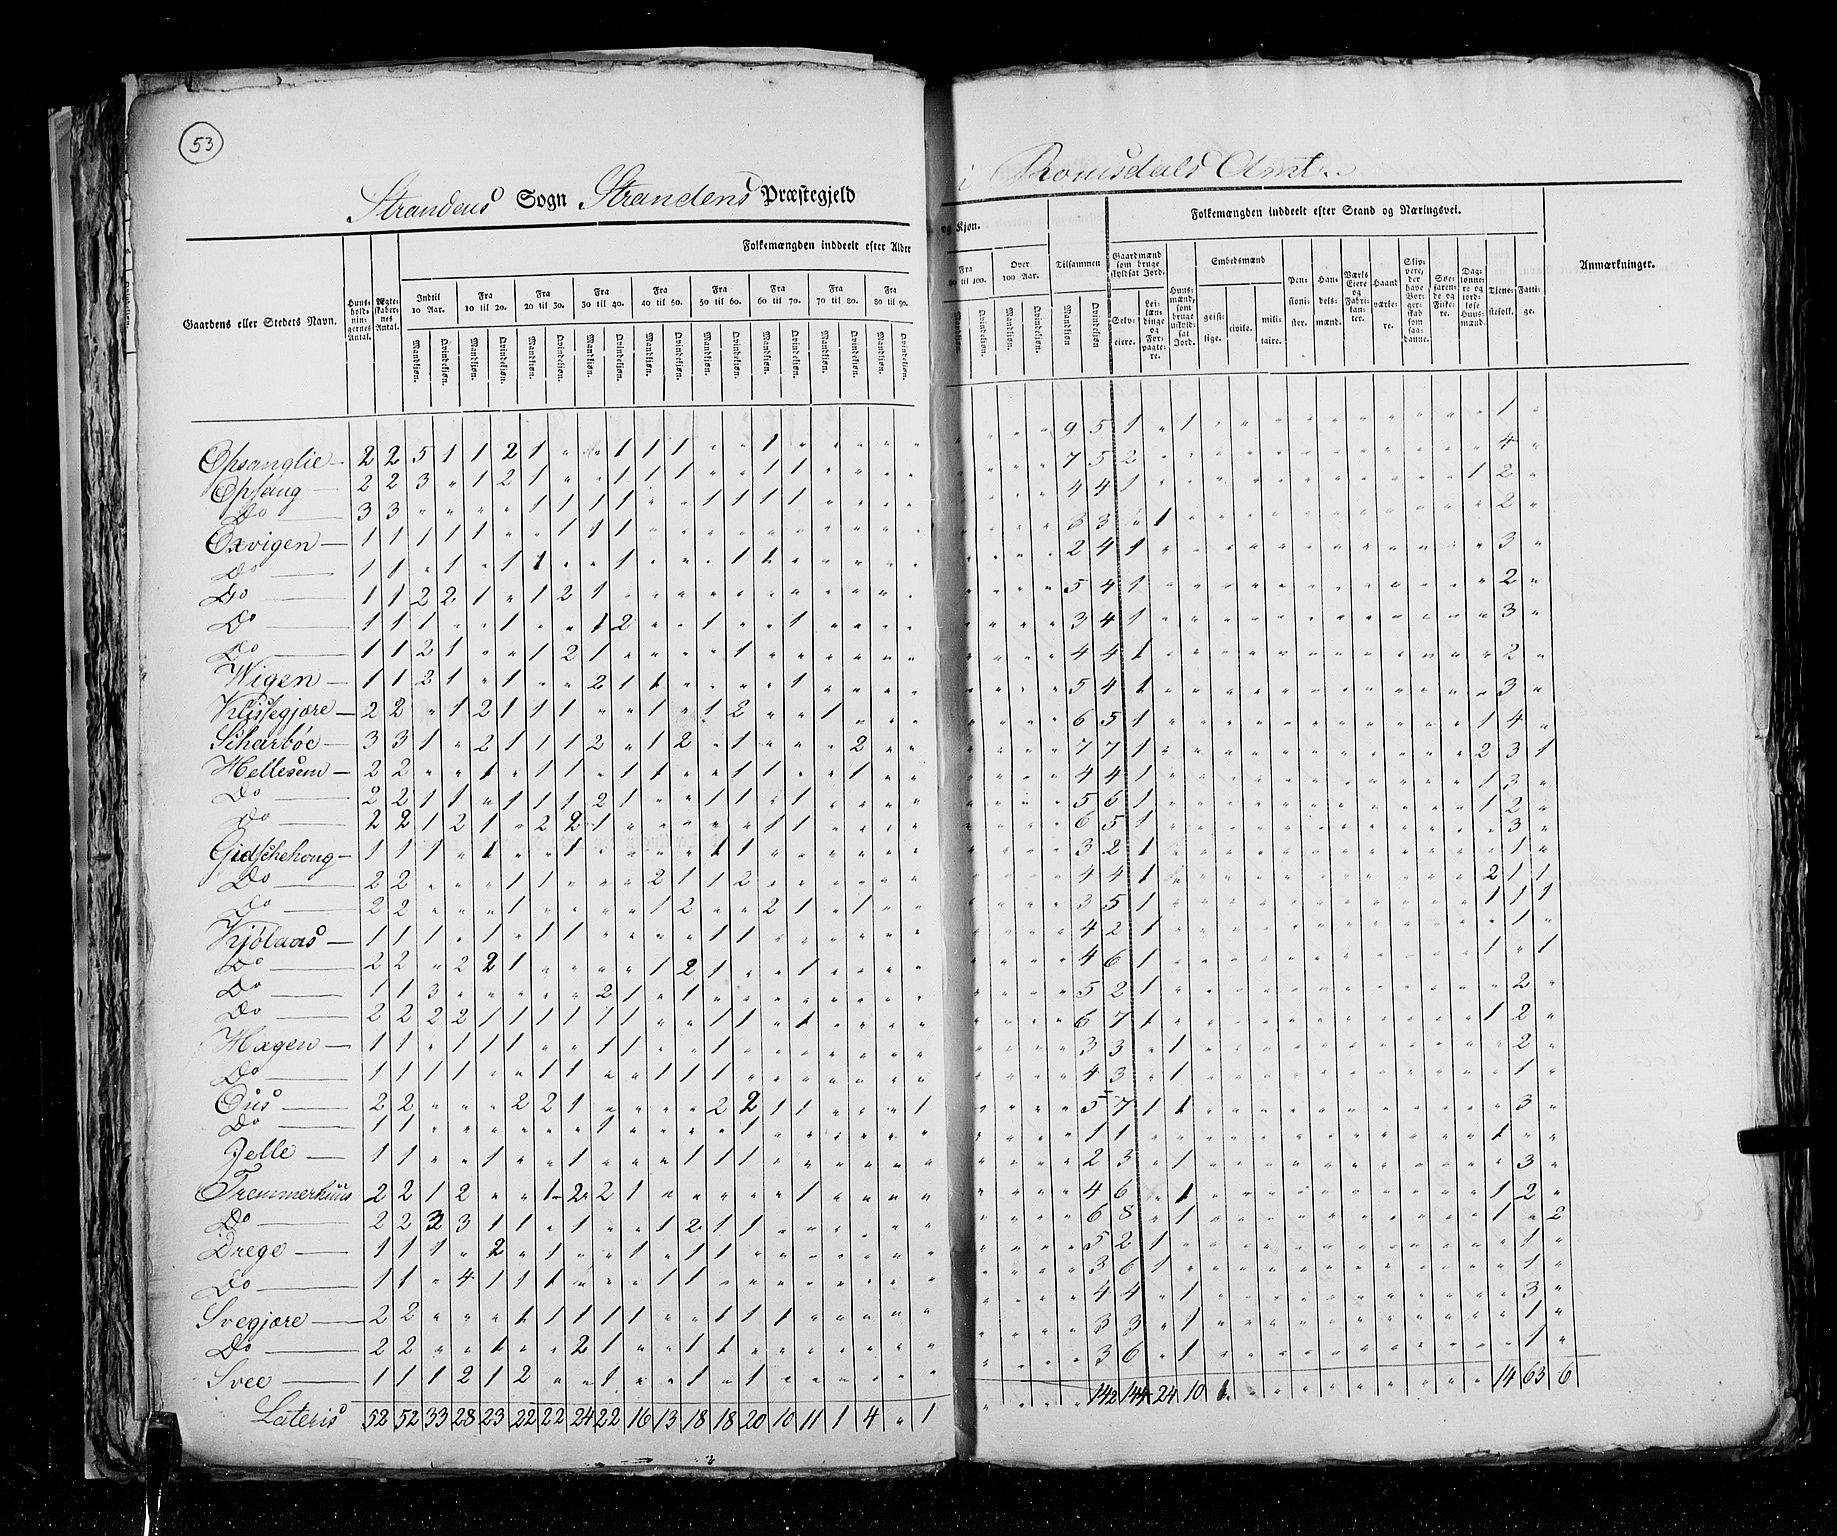 53
Strandens Sogn Strandens Præstegjeld
i Romsdals Amt.
Gaardens eller Stedets Navn.
Huus-holdnin-gernes Antal.
Ægte-skaber-nes Antal.
Folkemængden inddeelt efter Alder
og Kjøn.
Indtil 10 Aar.
Fra 10 til 20.
Fra 20 til 30.
Fra 30 til 40.
Fra 40 til 50.
Fra 50 til 60.
Fra 60 til 70.
Fra 70 til 80.
Fra 80 til 90.
Fra 90 til 100.
Over 100 Aar.
Mandkiøn. Qvindekiøn.
Tilsammen
Mandkiøn Qvindekiøn
Folkemængden inddeelt efter Stand og Næringsvei.
Gaardmænd som bruge skyldsat Jord.
Selv-eiere.
Lei-læn-dinge og For-pagte-re.
Huus-mænd, som bruge uskyld-sat Jord.
Embedsmænd
geist-lige. civile. mili-taire.
Pen-sioni-ster.
Han-dels-mænd.
Værks Eiere og Fabri-kan-ter.
Haand værke-re.
Skip-pere, der have Bor-ger-skab som saa-danne.
Søe-farende og Fiske-re.
Dag-lønne-re og jord-løse Huus-mænd.
Tiene-stefolk.
Fatti-ge.
Anmærkninger.
Opsanglie 2 2 5 1 1 2 1 " " 1 1 1 " " 1 " " " " 9 5 1 " 1 1 "
Opsang 2 2 3 " 1 2 1 " " 1 1 1 " " 1 1 " " " 7 5 2 4 "
Do 3 3 " " " " 1 1 1 1 " " 1 1 1 1 " " " 4 4 1 1 2 "
Oxvigen 1 1 1 1 1 " " 1 1 1 " 3 3 " 1 2 "
Do 1 1 " 1 " 1 1 " " 1 " " " 1 1 2 4 1 3 "
Do 1 1 2 2 1 " 1 2 1 " 5 4 1 2 "
Do 1 1 1 " " 1 " " 1 2 " " 1 " " 1 3 4 1 3 "
Do 1 1 2 1 " " 1 2 1 " " " " 1 4 4 1 2 "
Wigen 1 1 2 1 " 1 " " 2 1 1 " " " " 1 5 4 1 3 "
Klissegjære 2 2 " 1 2 1 1 1 " " 1 " 1 2 " " 1 6 5 1 1 4 "
Scharbøe 3 3 1 " 2 1 1 1 2 " 1 2 " 1 " " " 2 7 7 1 2 3 1
Hellesem 2 2 " " 1 " 1 1 " 1 1 " " 1 1 " " 1 4 4 1 1 3 "
Do 2 2 1 1 " 1 1 1 2 1 " " 1 1 " 1 5 6 1 1 2 "
Do 2 2 1 2 1 " 2 2 1 " " " " " 1 1 6 5 1 3 "
Gidschehoug 1 1 1 " 1 " " 1 " " " " 1 1 3 2 1 1 "
Do 2 2 " " " 1 1 " " " 2 1 1 2 4 4 1 2 1 1
Do 2 2 " " " 1 " " " " 1 2 " " 2 1 " 1 3 5 1 1 1 1
Kjølaas 1 1 1 " 1 " 1 1 " " " " 1 1 4 2 1 1 "
Do 2 2 " 2 2 1 " " " " 1 2 1 " " 1 4 6 1 1 " 1
Do 1 1 3 " " " " " 2 1 " 1 5 2 1 2 "
Do 2 2 2 2 1 1 1 1 1 1 " " 1 1 " 1 6 7 1 1 2 "
Hægen 1 1 " 1 1 1 " " 1 1 " " 1 3 3 " 1 2 "
Do 1 1 1 1 " " 1 1 " " 1 1 1 4 3 " 1 1 "
Ous 2 2 " " " 2 2 1 " " " " 2 2 1 1 " " " 1 5 7 1 1 3 "
Do 1 1 " " " " " " 1 " " " " 1 1 1 1 "
Jelle 1 1 " " 1 " " 1 " " " 1 1 1 2 3 " 1 3 "
Tremmerhuus 2 2 1 2 " " 1 2 2 1 " " " " " 1 4 6 " 1 1 2 "
Do 2 2 3 3 1 1 " 1 " " 1 2 1 1 6 8 " 1 1 " 2
Drege 1 1 1 " 2 " 1 " " 1 " 1 1 5 2 1 1 "
Do 1 1 " 4 1 1 1 " " " 1 1 3 6 1 1 "
Svegjære 2 2 " " " 1 1 1 1 1 " " 1 1 1 4 4 " 1 3 "
Do 2 2 " " 1 " " 2 1 " " 1 1 3 3 " 1 1 "
Svee 1 1 1 2 1 2 " " 1 " " 1 " 1 3 6 " 1 1 "
Lateris 52 52 33 28 23 22 22 24 22 16 13 18 18 20 10 11 1 4 " 1 142 144 24 10 1 14 63 6